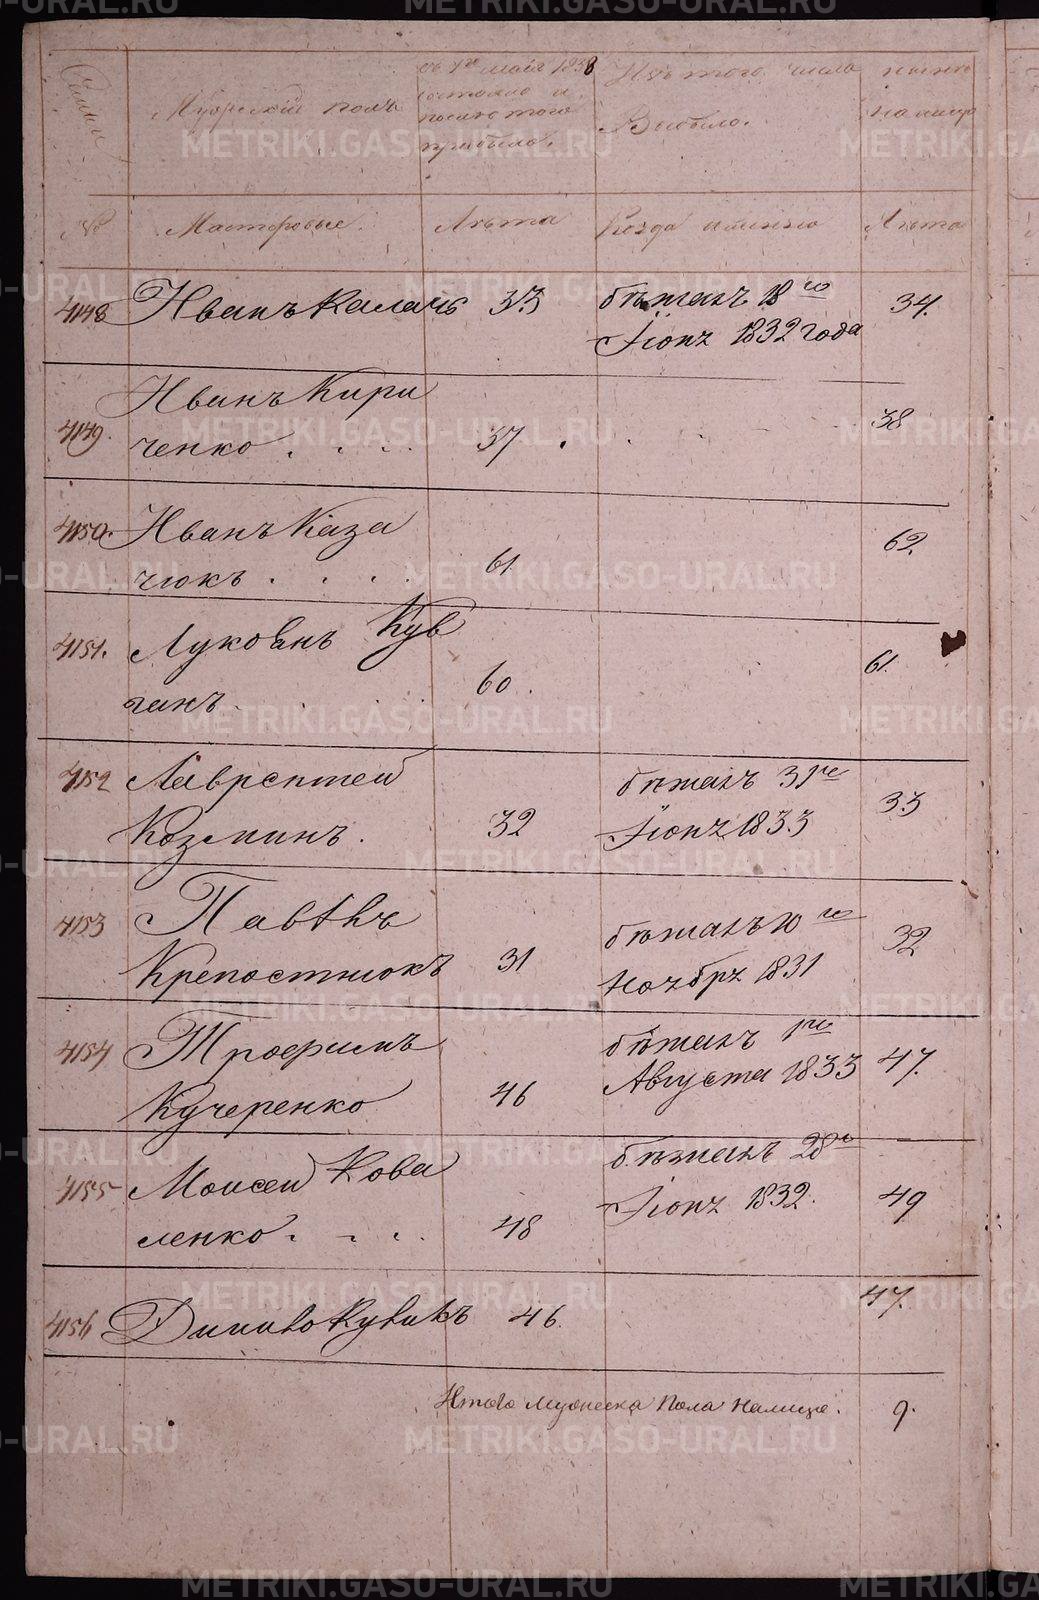 METRIKI.GASO-URAL.RU
Семьи
Мужескій полъ
Съ 1го мая 1833
состояло и
послѣ того
прибыло.
Изъ того числа
Выбыло.
нынѣ
на лицо
№
Мастеровые.
Лѣта
Когда именно
Лѣта
4148
Иванъ Калачъ
33
бѣжалъ 18го
Іюня 1832 года
34.
4149.
Иванъ Кири
ченко . . . .
37
38
4150.
Иванъ Каза
чюкъ . . . .
61
62.
4151.
Лукоянъ
ганъ
60.
61.
4152
Лаврентей
Козминъ.
32
бѣжалъ
Іюня 1833
33
4153
Павѣлъ
Крепостнюкъ
31
бѣжалъ 10го
Ноября 1831
32
4154
Трофимъ
Кучеренко
46
бѣжалъ 1го
Августа 1833
47.
4155
Моисей Кова
ленко . . . .
48
бѣжалъ 28го
Іюня 1832.
49
4156
46.
47.
Итого Мужеска Пола Налице.
9.